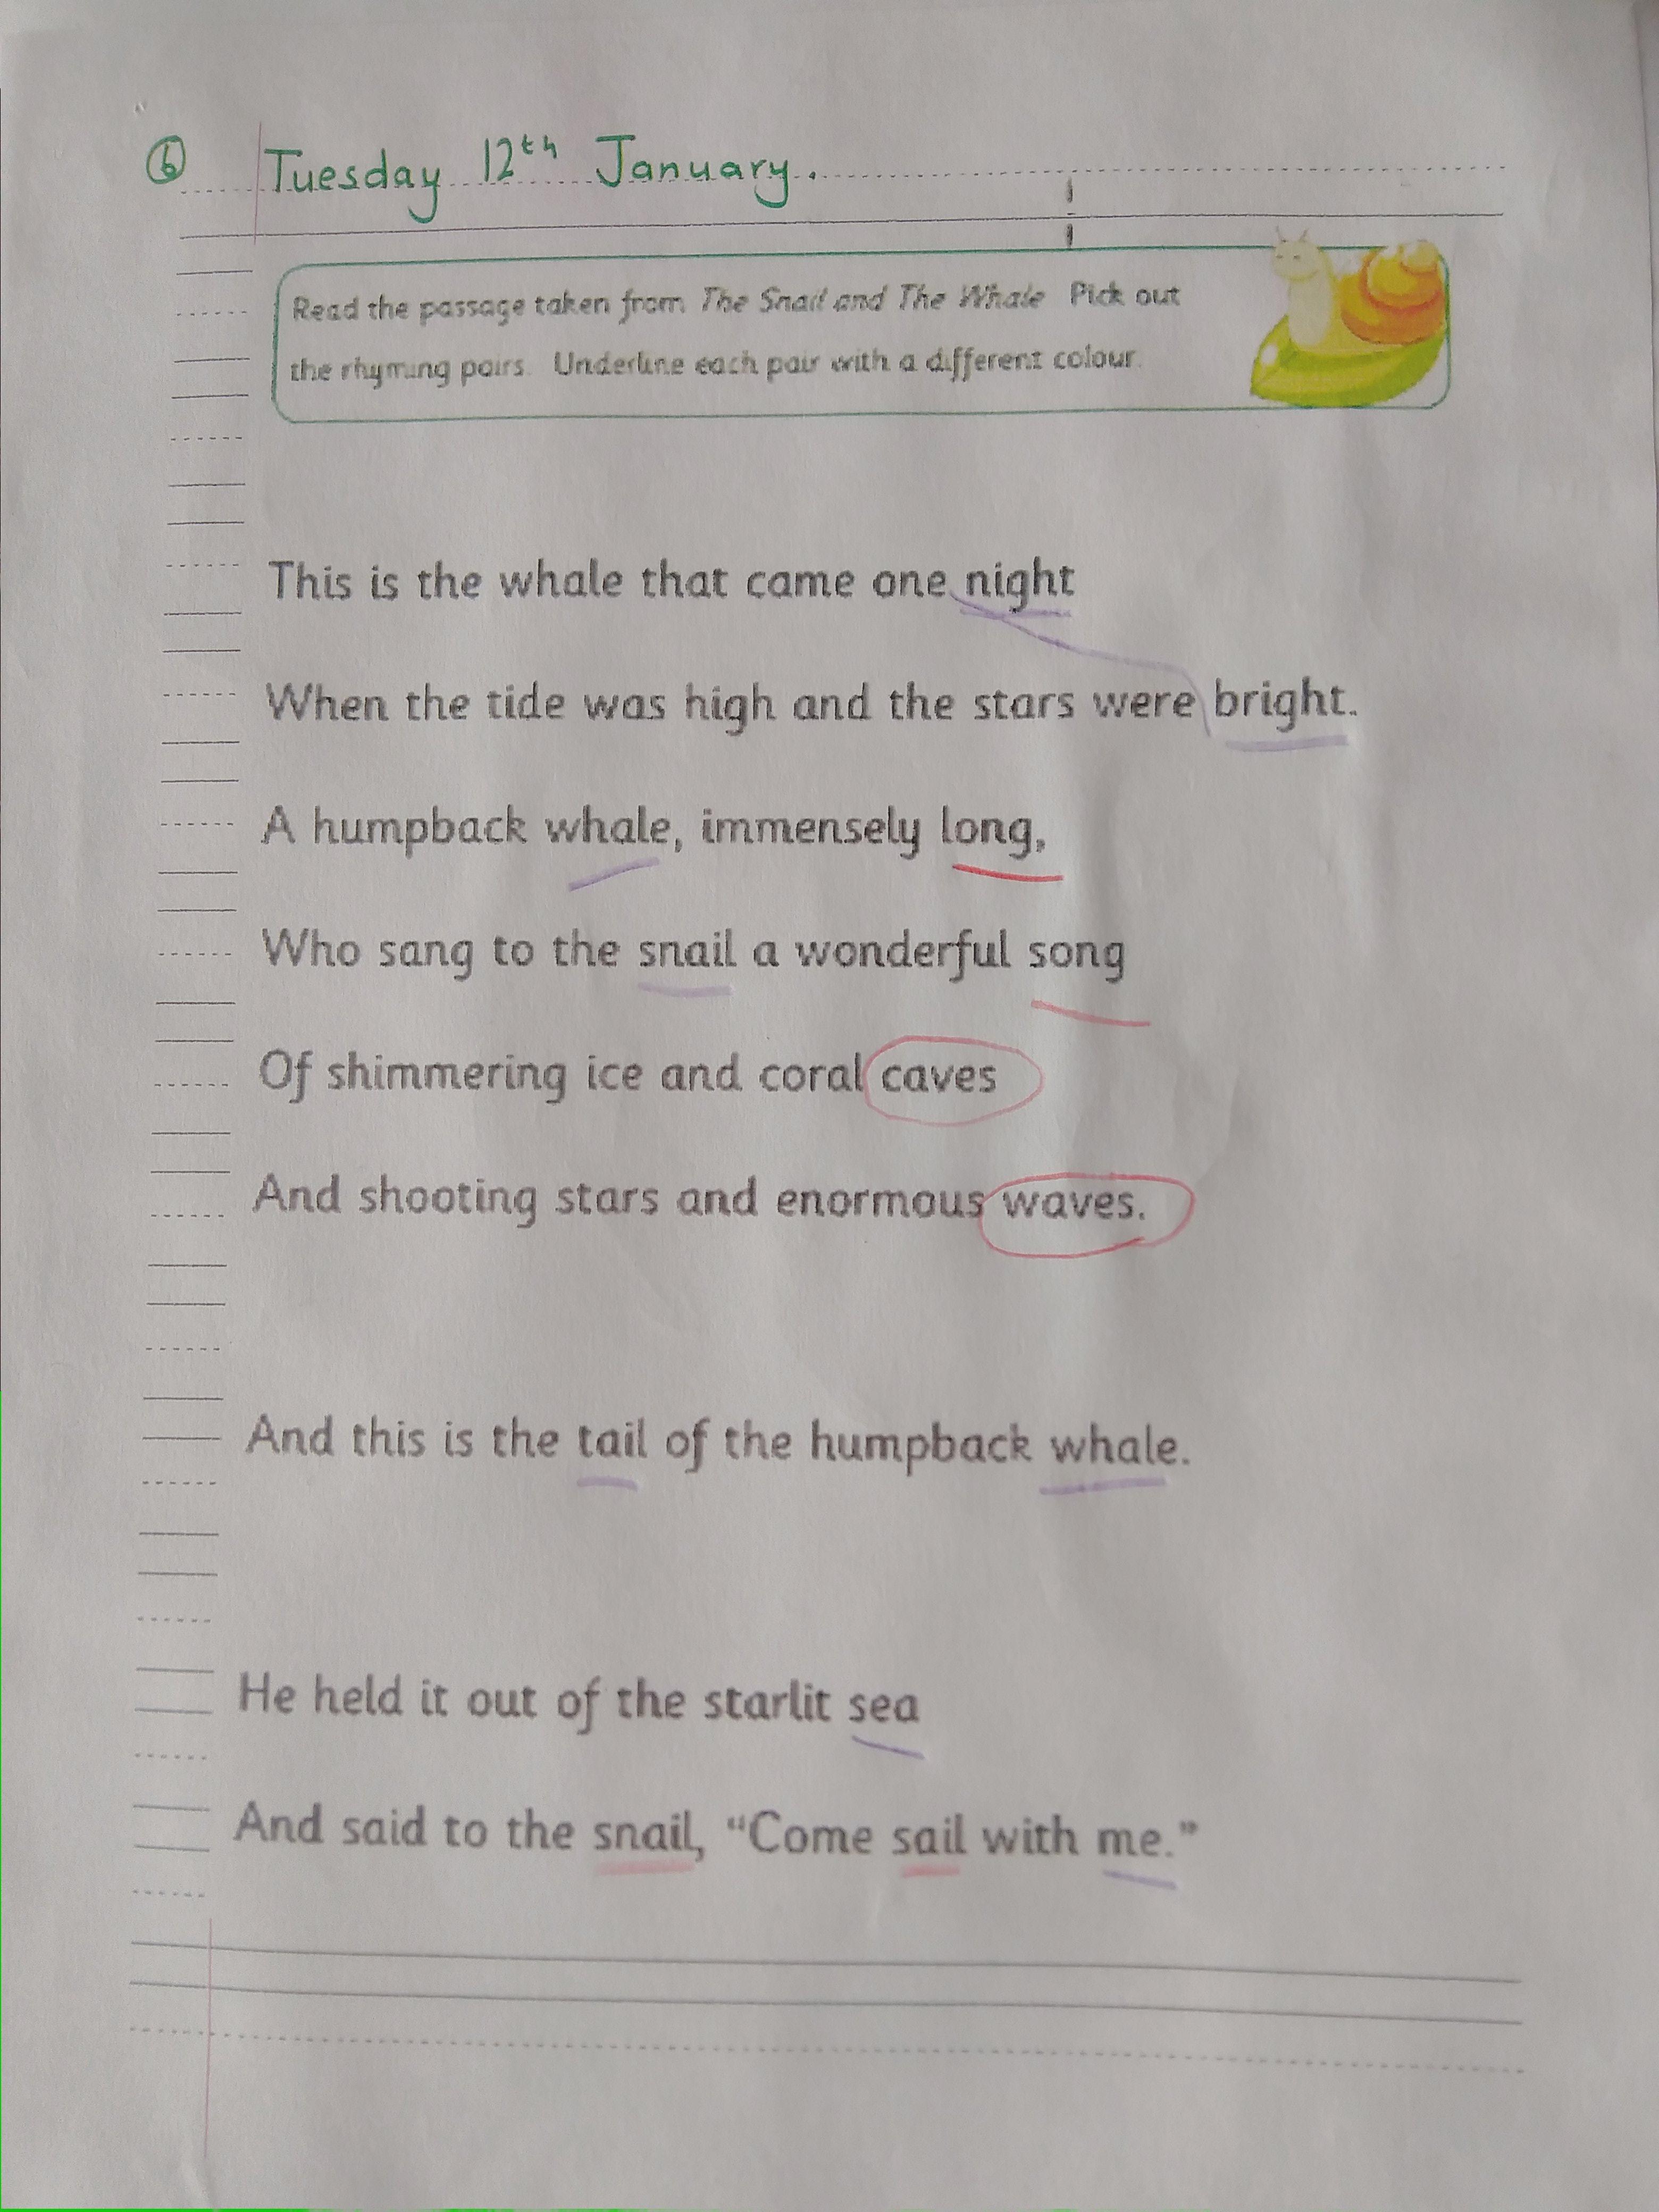 6 Tuesday 12th January.
Read the passage taken from The Snail and The Whale Pick out
the rhyming pairs. Underline each pair with a different colour.
This is the whale that came one night
When the tide was high and the stars were bright.
A humpback whale, immensely long,
Who sang to the snail a wonderful song
Of shimmering ice and coral caves
And shooting stars and enormous waves.
And this is the tail of the humpback whale.
He held it out of the starlit sea
And said to the snail, “Come sail with me.”